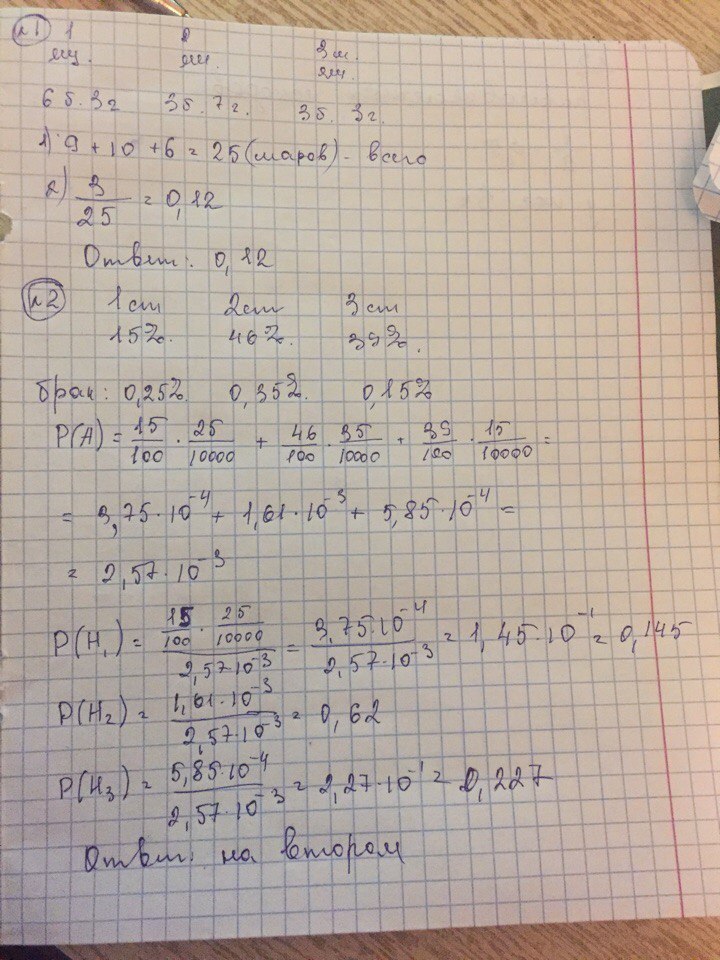 №1 1 2 3м.
ящ. ящ. ящ.
6б. 3г 3б. 7г. 3б. 3г.
1) 9 + 10 + 6 = 25 (шаров) - всего
2) 3/25 = 0,12
Ответ: 0,12
№2 1ст 2ст 3ст
15%. 46%. 39%.
брак: 0,25%. 0,35%. 0,15%
P(A) = 15/100 · 25/10000 + 46/100 · 35/10000 + 39/100 · 15/10000 =
= 3,75·10⁻⁴ + 1,61·10⁻³ + 5,85·10⁻⁴ =
= 2,57·10⁻³
P(H₁) = (15/100 · 25/10000)/(2,57·10⁻³) = (3,75·10⁻⁴)/(2,57·10⁻³) = 1,45·10⁻¹ = 0,145
P(H₂) = (1,61·10⁻³)/(2,57·10⁻³) = 0,62
P(H₃) = (5,85·10⁻⁴)/(2,57·10⁻³) = 2,27·10⁻¹ = 0,227
Ответ: на втором